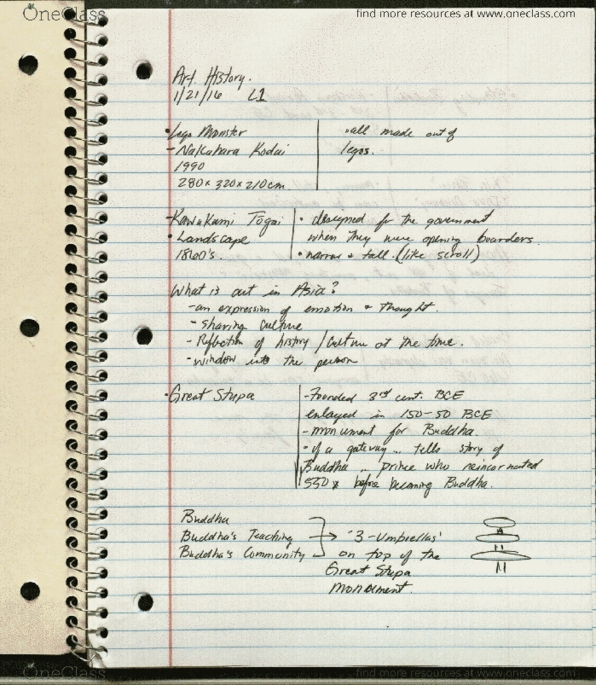 OneClass
find more resources at www.oneclass.com
Art History.
1/21/16 L1
• Lego Monster
- Nakahara Kodai
1990
280 x 320 x 210cm
• all made out of
legos.
- Kawakami Togai
• Landscape
1860's.
• designed for the government
when they were opening boarders.
• narrow & tall. (like scroll)
What is art in Asia?
- an expression of emotion & thought.
- sharing culture
- Reflection of history / culture at the time.
- window into the person
• Great Stupa
- Founded 3rd cent. BCE
enlaged in 150-50 BCE
- monument for Buddha.
• if a gateway... tells story of
Buddha... prince who reincarnated
550x before becoming Buddha.
Buddha
Buddha's Teaching
Buddha's Community
→ '3-Umbrellas'
on top of the
Great Stupa
monument.
OneClass
find more resources at www.oneclass.com